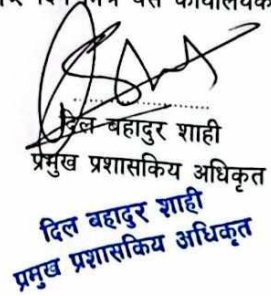 यस कार्यालयक
दिल बहादुर शाही
प्रमुख प्रशासकिय अधिकृत
दिल बहादुर शाही
प्रमुख प्रशासकिय अधिकृत